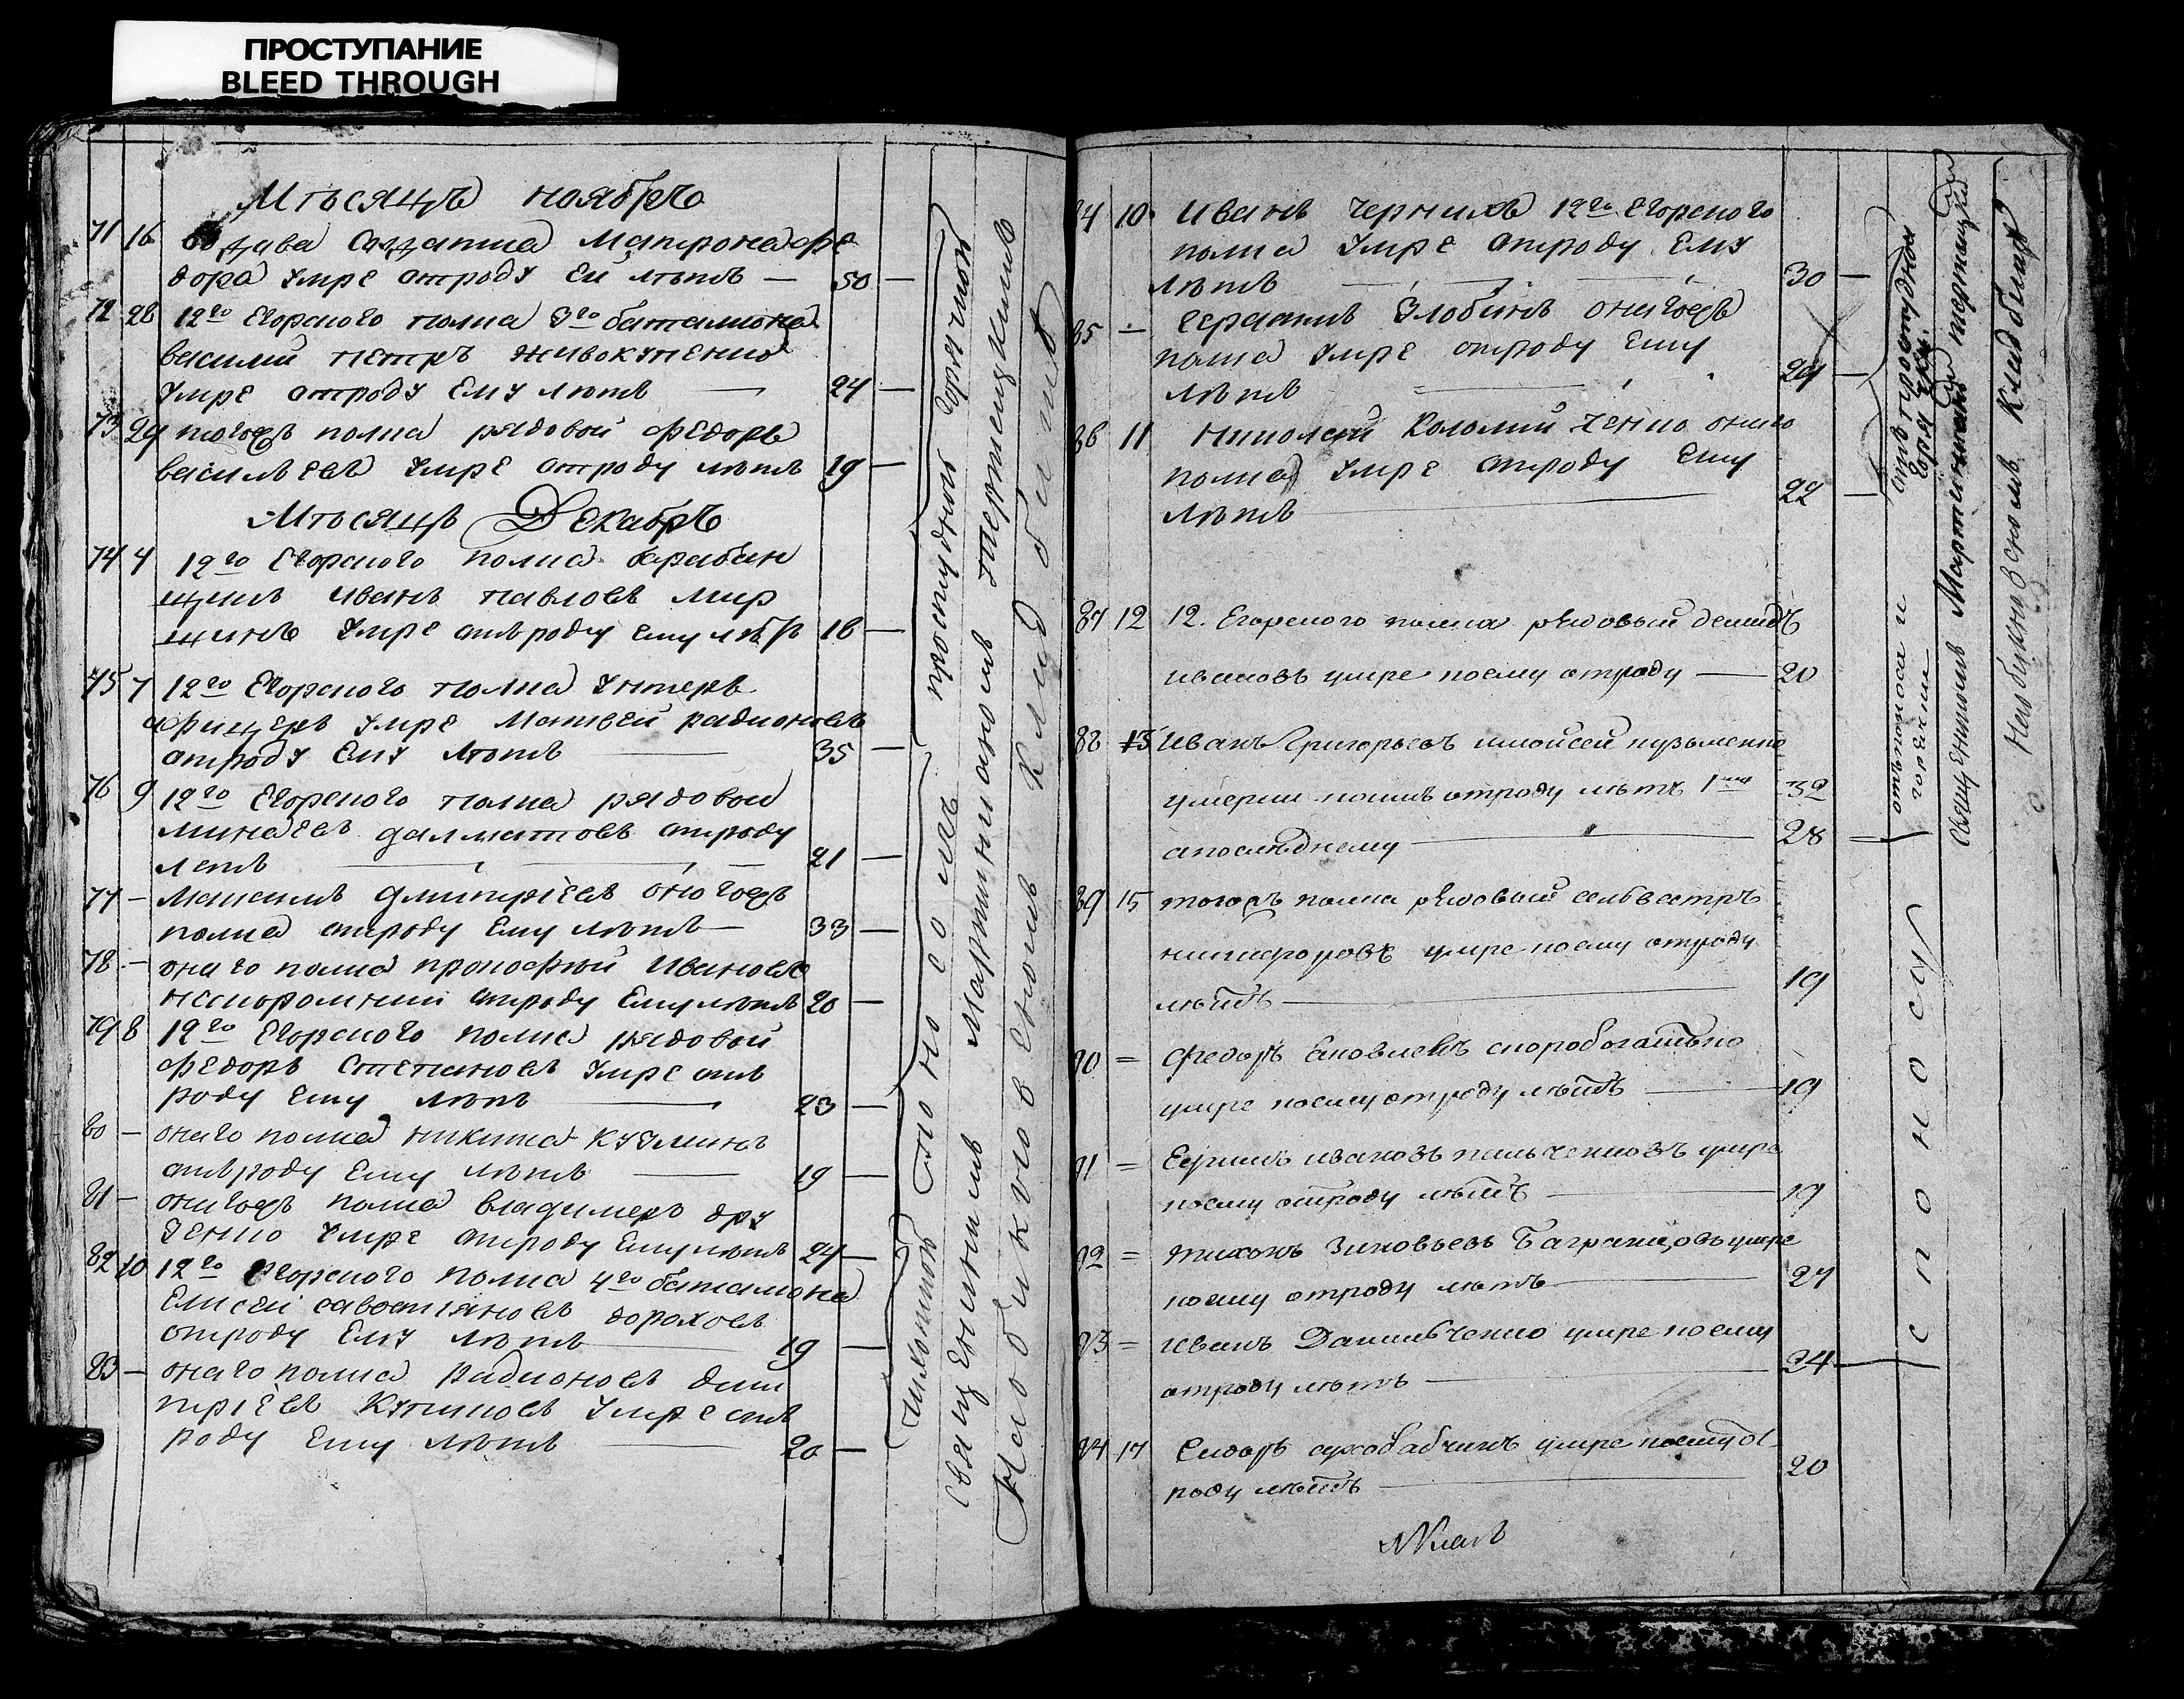 ПРОСТУПАНИЕ
BLEED THROUGH
Мѣсяцъ ноябрь
71 16 вдава Салдатка Матрона фе
дора умре отроду Ей лѣтъ — 50 —
72 28 12го Егорского полка 3го баталиона
василий петръ живокупенко
умре отроду Ему лѣтъ — 24 —
73 29 тогожъ полка рядовой федоръ
васильевъ умре отроду лѣтъ 19 —
Мѣсяцъ Декабрь
74 4 12го Егорского полка барабан
щикъ иванъ павловъ мир
умре отъроду ему лѣтъ 18 —
75 7 12го Егорского полка унтеръ
афицеръ умре Матвей радионовъ
отроду Ему лѣтъ — 35 —
76 9 12го Егорского полка рядовой
минаевъ далматовъ отроду
летъ — 21 —
77 — Максимъ дмитріевъ оногожъ
полка отроду Ему лѣтъ — 33 —
78 — онаго полка прокофий Ивановъ
отроду Ему лѣтъ 20 —
79 8 12го Егорского полка рядовой
федоръ Степановъ умре отъ
роду Ему лѣтъ — 23 —
80 — онаго полка никита кузминъ
отъроду Ему лѣтъ — 19 —
81 — онагожъ полка владимеръ дру
зенко умре отроду Ему лѣтъ 24 —
82 10 12го Егорского полка 4го баталиона
Елисей савостіяновъ дороховъ
отроду Ему лѣтъ — 19 —
83 — онаго полка Радионовъ дми
тріевъ умре отъ
роду Ему лѣтъ — 20 —
простудной горячкой
поносомъ
священникъ Мартиникианъ Тершецкимъ
На быковскомъ Кладбище
84 10 Иванъ Черныхъ 12го Егорского
полка умре отроду Ему
лѣтъ — 30 —
85 — Герасимъ Злобинъ онагожъ
полка умре отроду Ему
лѣтъ — 24 —
86 11 Николай Коломийченко онаго
полка умре отроду Ему
лѣтъ — 22 —
87 12 12. Егорского полка рядовый демидъ
ивановъ умре коему отроду — 20
88 13 Иванъ Григорьевъ имойсей кузьменко
умерли коимъ отроду лѣтъ 1му 32
апослѣднему — 28
89 15 тогожъ полка рядовый селвестръ
никифоровъ умре коему отроду
лѣтъ — 19
90 = Федоръ Яковлевъ скоробогатько
умре коему отроду лѣтъ — 19
91 = Ефимъ ивановъ пильченковъ умре
коему отроду лѣтъ — 19
92 = тихонъ Зиновьевъ Багринцовъ умре
коему отроду лѣтъ — 27
93 = Иванъ Данильченко умре коему
отроду лѣтъ — 24
94 17 Сидоръ умре коему от
роду лѣтъ — 20
отъ простудной
горячки
отъ поноса и
горячки
с поносу
священникъ Мартиникианъ
На быковскомъ кладбище